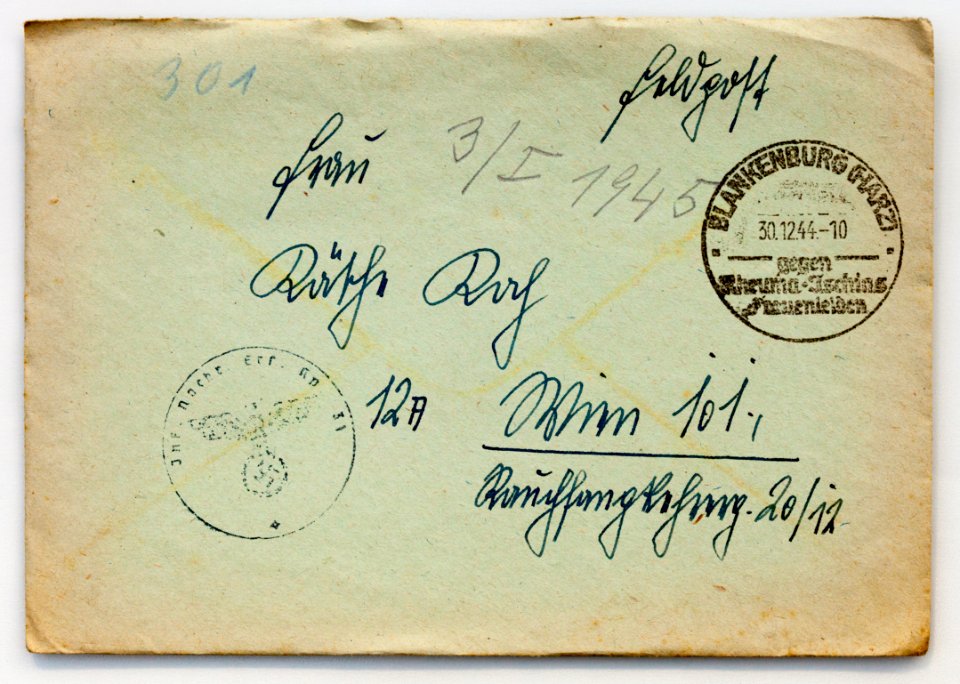 301
Feldpost
Frau
3/I 1945
BLANKENBURG (HARZ)
30.12.44.-10
gegen
Rheuma-Ischias
Frauenleiden
Käthe Koch
Inf. Nachr. Ers. Kp. 31
12A Wien 101.,
Rauchfangkehrerg. 20/12